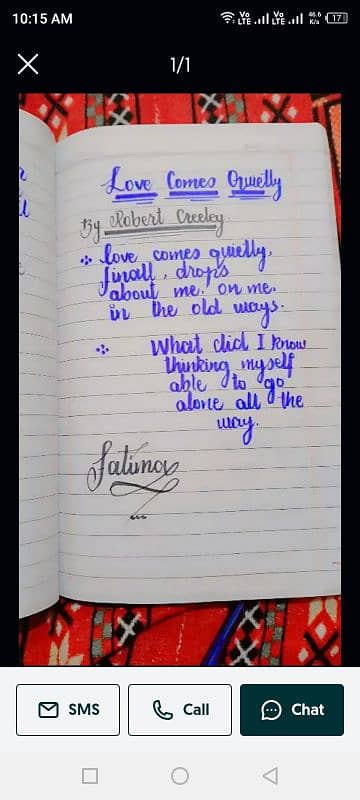 10:15 AM
Vo LTE Vo LTE 46.6 K/s 17
1/1
Love Comes Quietly
By Robert Creeley
love comes quietly,
finall, drops
about me, on me.
in the old ways.
What did I know
thinking myself
able to go
alone all the
way.
Fatima
SMS Call Chat